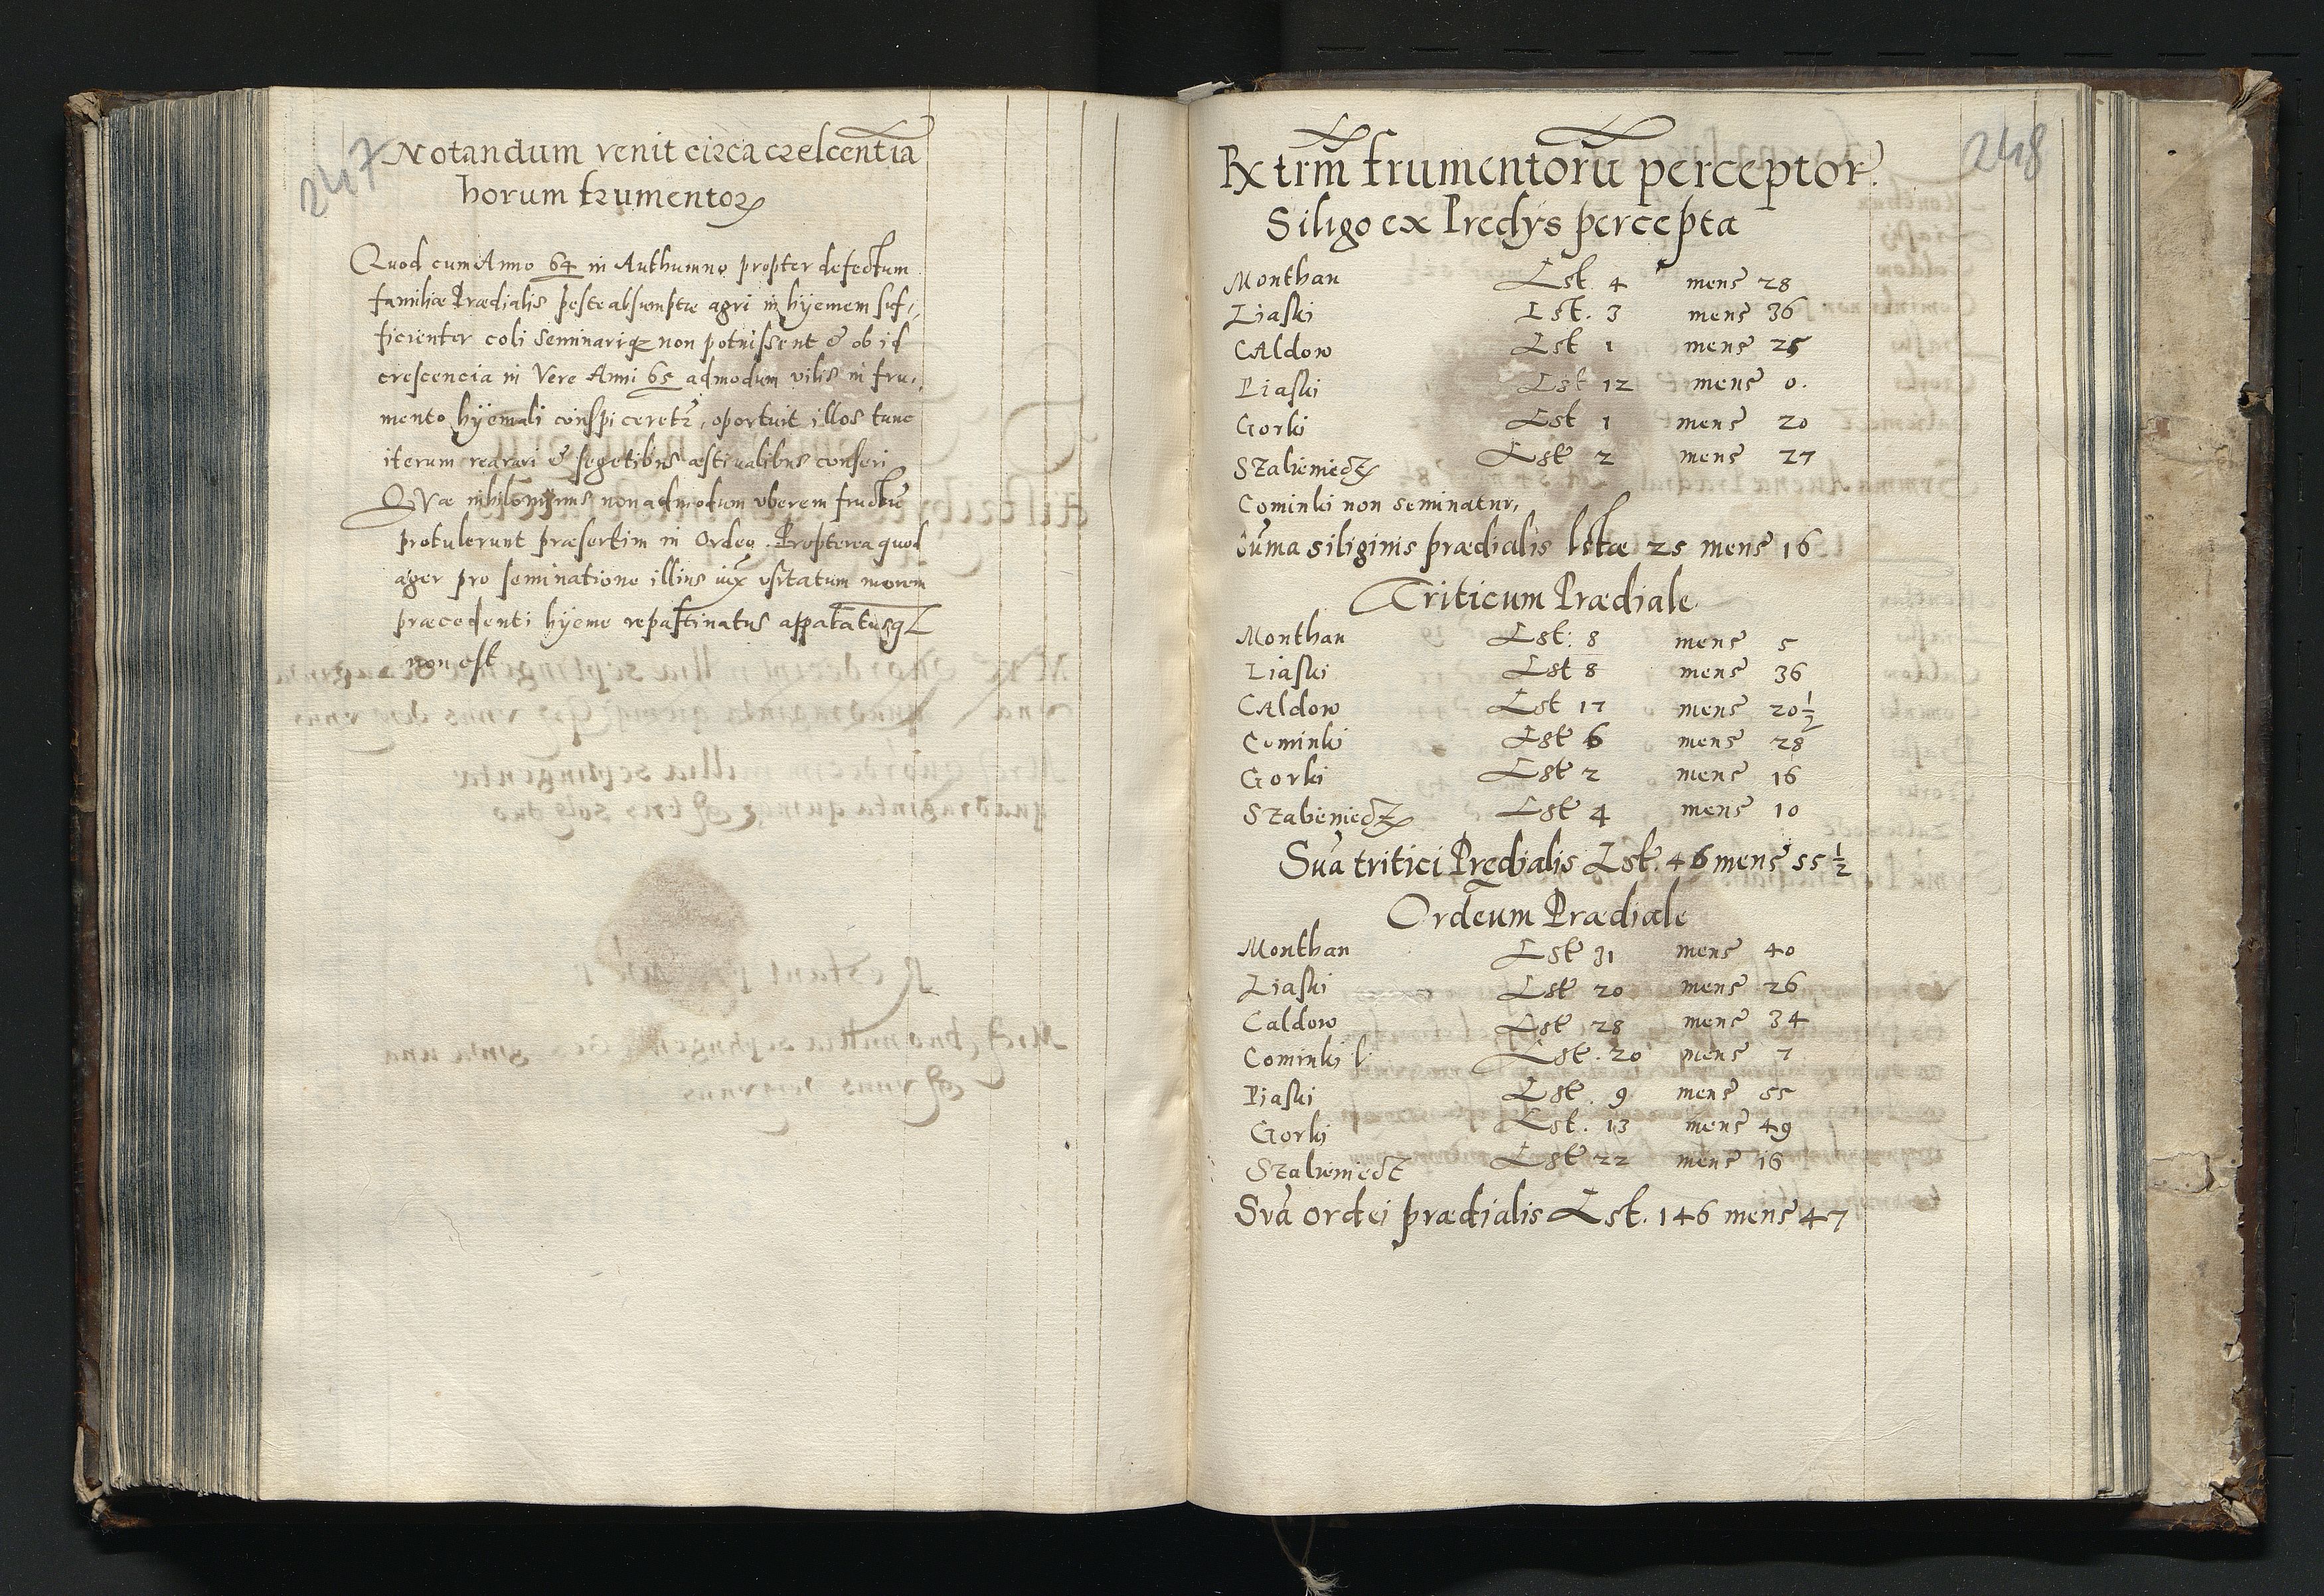 247
Notandum venit circa crescentia
horum frumentoꝝ
Quod cum Anno 64 in Authumno propter defectum
familiæ Prædialis peste absumptæ agri in hyemem suf,,
ficienter coli seminariqꝫ non potuissent & ob id
crescencia in Vere Anni 65 admodum vilis in fru,,
mento hyemali conspiceretr, oportuit illos tunc
iterum rearari & segetibus æstiualibus conseri
QVæ nihilominus non admodum vberem fructū
protulerunt præsertim in Ordeo. Propterea quod
ager pro seminatione illius iux vsitatum morem
præcedenti hyeme repastinatus apparatusqꝫ
non est
248
Ex trm̃ frumentorū perceptor.
Siligo ex Predys percepta
Monthan Lst. 4 mens 28
Liaski Lst. 3 mens 36
CAldow Lst 1 mens 25
Piaski Lst 12 mens 0.
Gorki Lst 1 mens 20
Szalieniecz Lst 2 mens 27
Cominki non seminatur,
Sūma siliginis prædialis lstæ 25 mens 16
Triticum Prædiale
Monthan Lst: 8 mens 5
Liaski Lst 8 mens 36
CAldow Lst 17 mens 20 ½
Cominki Lst 6 mens 28
Gorki Lst 2 mens 16
Szalieniecz Lst 4 mens 10
Sūa tritici Prędialis Lst. 46 mens 55 ½
Ordeum Prædiale
Monthan Lst 31 mens 40
Liaski Lst 20 mens 26
Caldow Lst 28 mens 34
Cominki l Lst. 20 mens 7
Piaski Lst. 9 mens 55
Gorki Lst. 13 mens 49
Szalieniecz Lst 22 mens 16
Sūa ordei prædialis Lst. 146 mens 47